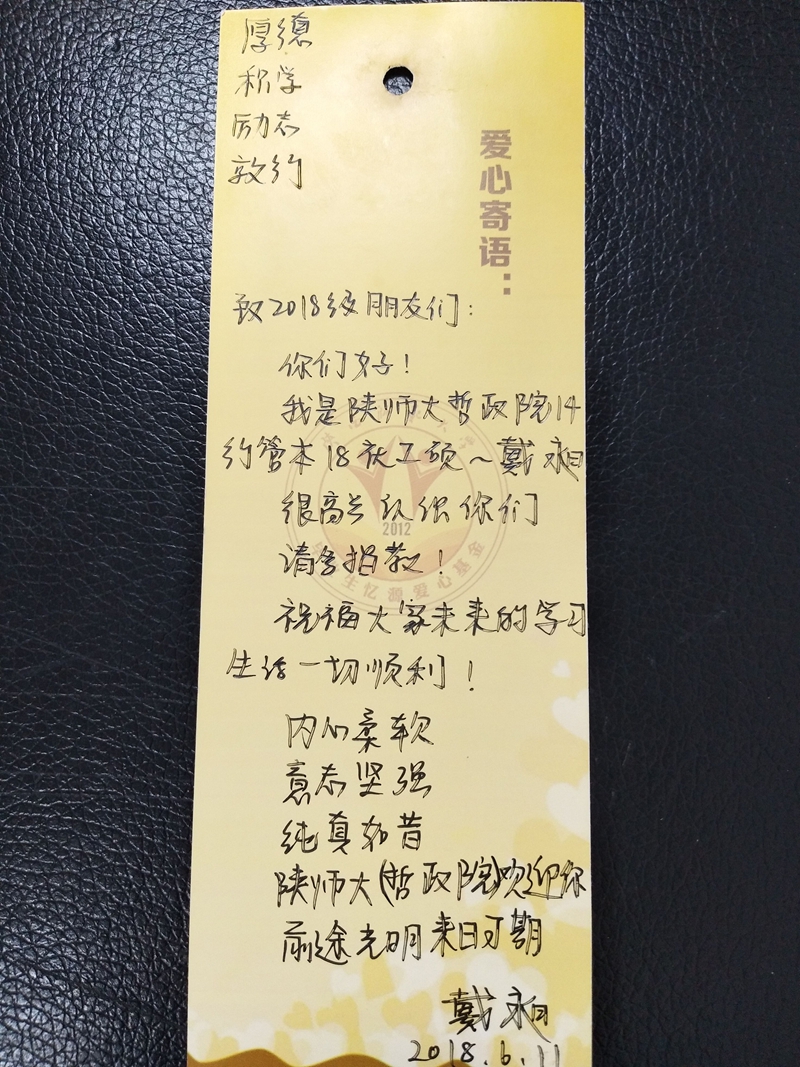 厚德
积学
励志
敦行
爱心寄语：
致2018级朋友们：
你们好！
我是陕师大哲政院14
行管本18社工硕~戴昶
很高兴认识你们
请多指教！
祝福大家未来的学习
生活一切顺利！
内心柔软
意志坚强
纯真如昔
陕师大(哲政院)欢迎你
前途光明来日可期
戴昶
2018.6.11
2012
爱心基金